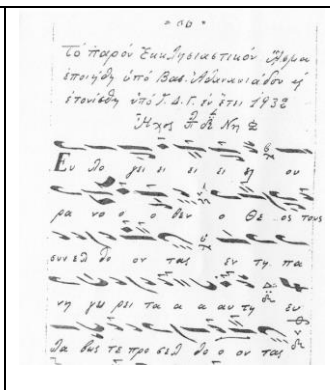 Τὸ παρὸν Ἐκκλησιαστικὸν ᾆσμα
ἐποιήθη ὑπὸ Βας. Ἀθανασιάδου
ἐτονίσθη ὑπὸ Γ. Δ. Γ. ἐν ἔτει 1932
Ἦχος Νη
Ευ λο γει ει ει ει ου
ρα νο ο ο θεν ο Θε ος τους
συν ελ θο ον τας εν τη πα
νη γυ ρει τα α α αυ τη ευ
λα βως τε προ σελ θο ο ον τας